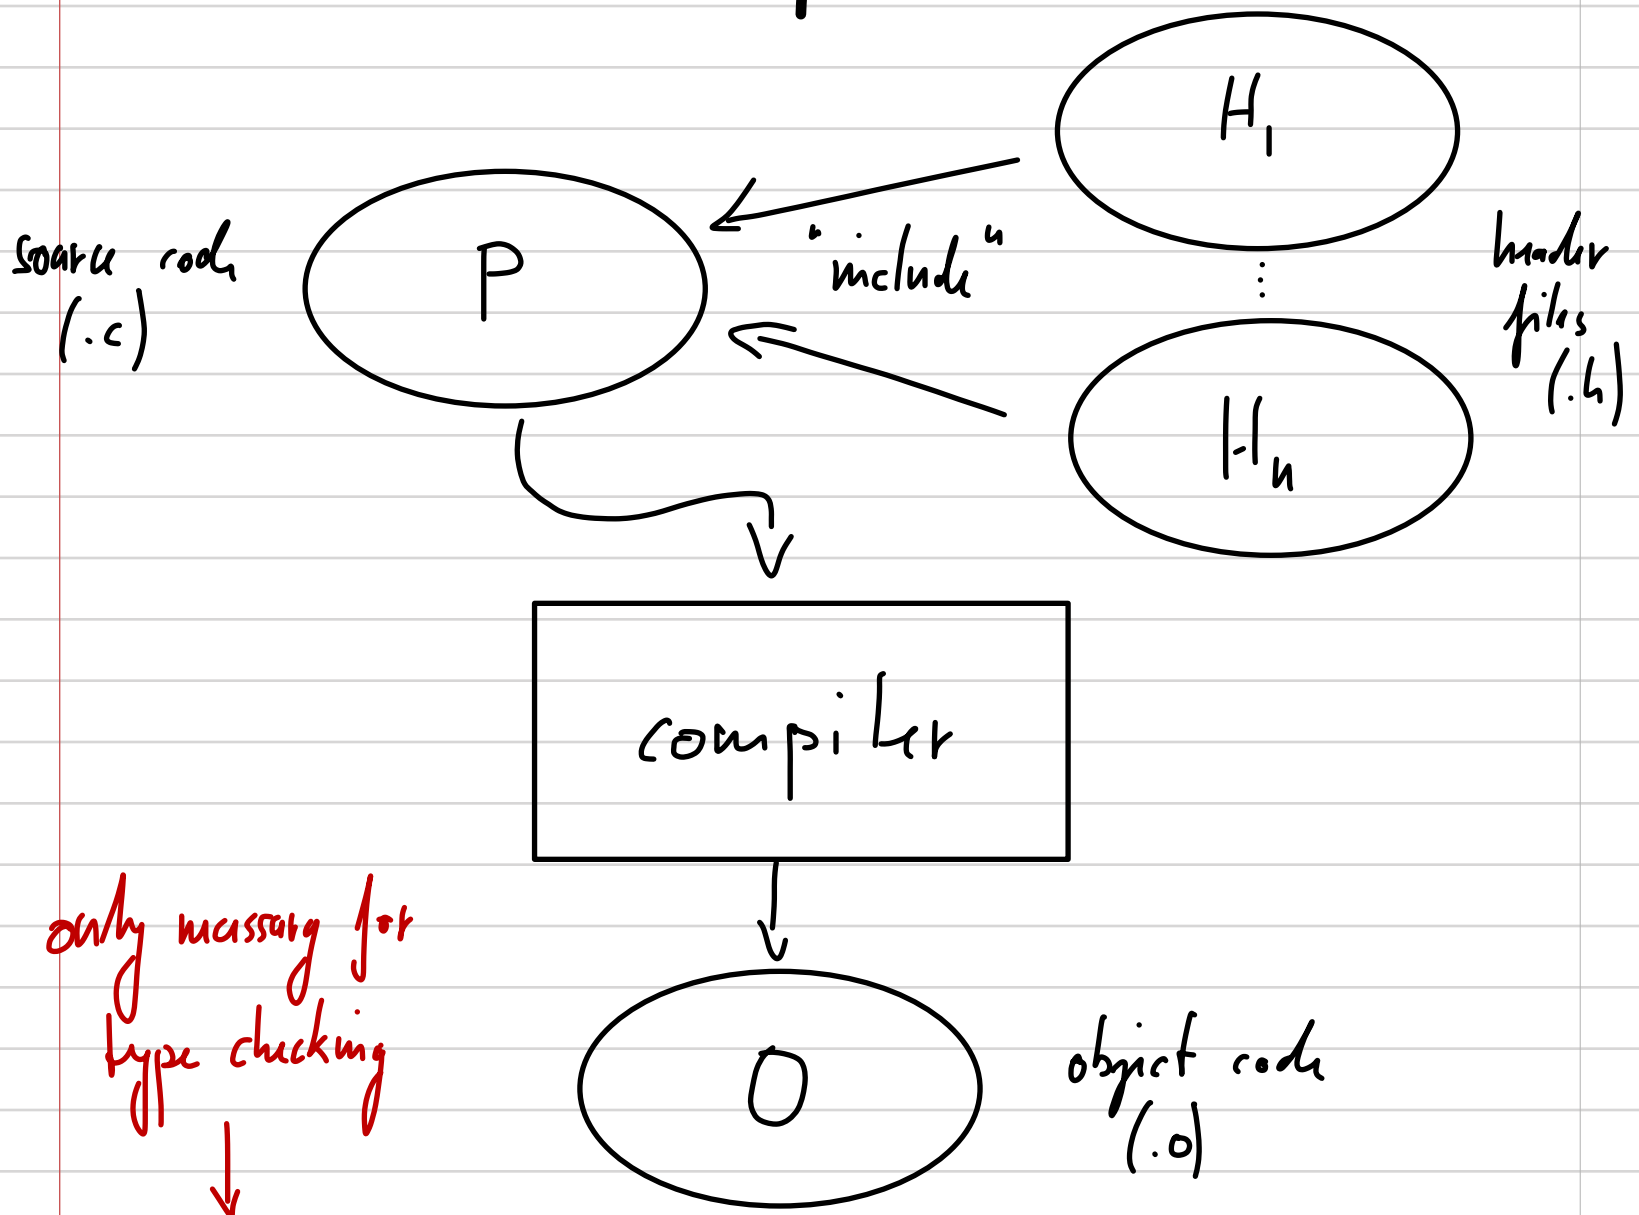 H1
source code
(.c)
P
"include"
header
files
(.h)
Hn
compiler
only necessary for
type checking
O
object code
(.o)